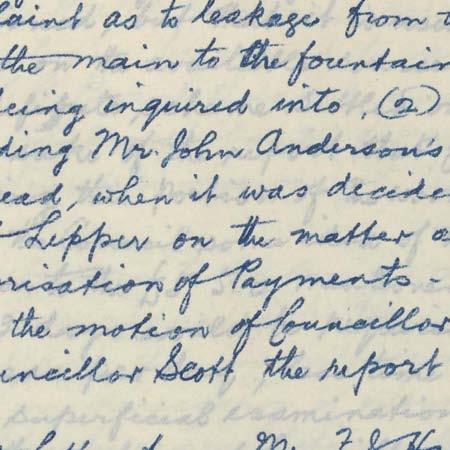 laint as to leakage from t
the main to the fountain
being inquired into. (2)
ding Mr. John Anderson's
ead, when it was decide
Lepper on the matter a
risation of Payments -
the motion of Councillor
uncillor Scott the report
superficial examination
Mr. F. J. H